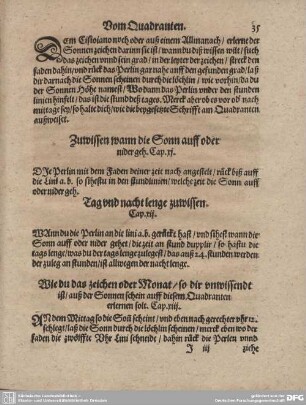 Vom Quadranten. 35
Dem Cisioiano noch oder auß einem Allmanach / erlerne der
Sonnen zeichen darinn sie ist / wann du diß wissen wilt / such
das zeichen vnnd sein grad / in der leyter der zeichen / streck den
faden dahin / vnd rück das Perlin zar nahe auff den gefunden grad / laß
dir darnach die Sonnen scheinen durch die löchlin / wie vorhin / da du
der Sonnen Höhe namest / Wo dann das Perlin vnder den stunden
linien hinfelt / das ist die stund deß tages. Merck aber ob es vor oß nach
mittage sey / so halte dich / wie die beygesetzte Schrifft am Quadranten
außweiset.
Zuwissen wann die Sonn auff oder
nider geh. Cap. xj.
DJe Perlin mit dem Faden deiner zeit nach angestelt / rück biß auff
die Lini a. b. so sihestu in den stundlinien / welche zeit die Sonn auff
oder nider geh.
Tag vnd nacht lenge zuwissen.
Cap. xij.
WAnn du die Perlin an die lini a. b. geruckt hast / vnd sihest wann die
Sonn auff oder nider gehet / die zeit an stund dupplir / so hastu die
tags lenge / was du der tags lenge zulegest / das auß 24. stunden werden
der zuleg an stunden / ist allwegen der nacht lenge.
Wie du das zeichen oder Monat / so dir vnwissendt
ist / auß der Sonnen schein auff diesem Quadranten
erlernen solt. Cap. xiij.
AN dem Mittag so die Soñ scheint / vnd eben nach gerechter vhr 12.
schlegt / laß die Sonn durch die löchlin scheinen / merck eben wo der
faden die zwölffte Vhr Lini schneidt / dahin rück die Perlen vnnd
J iij ziehe